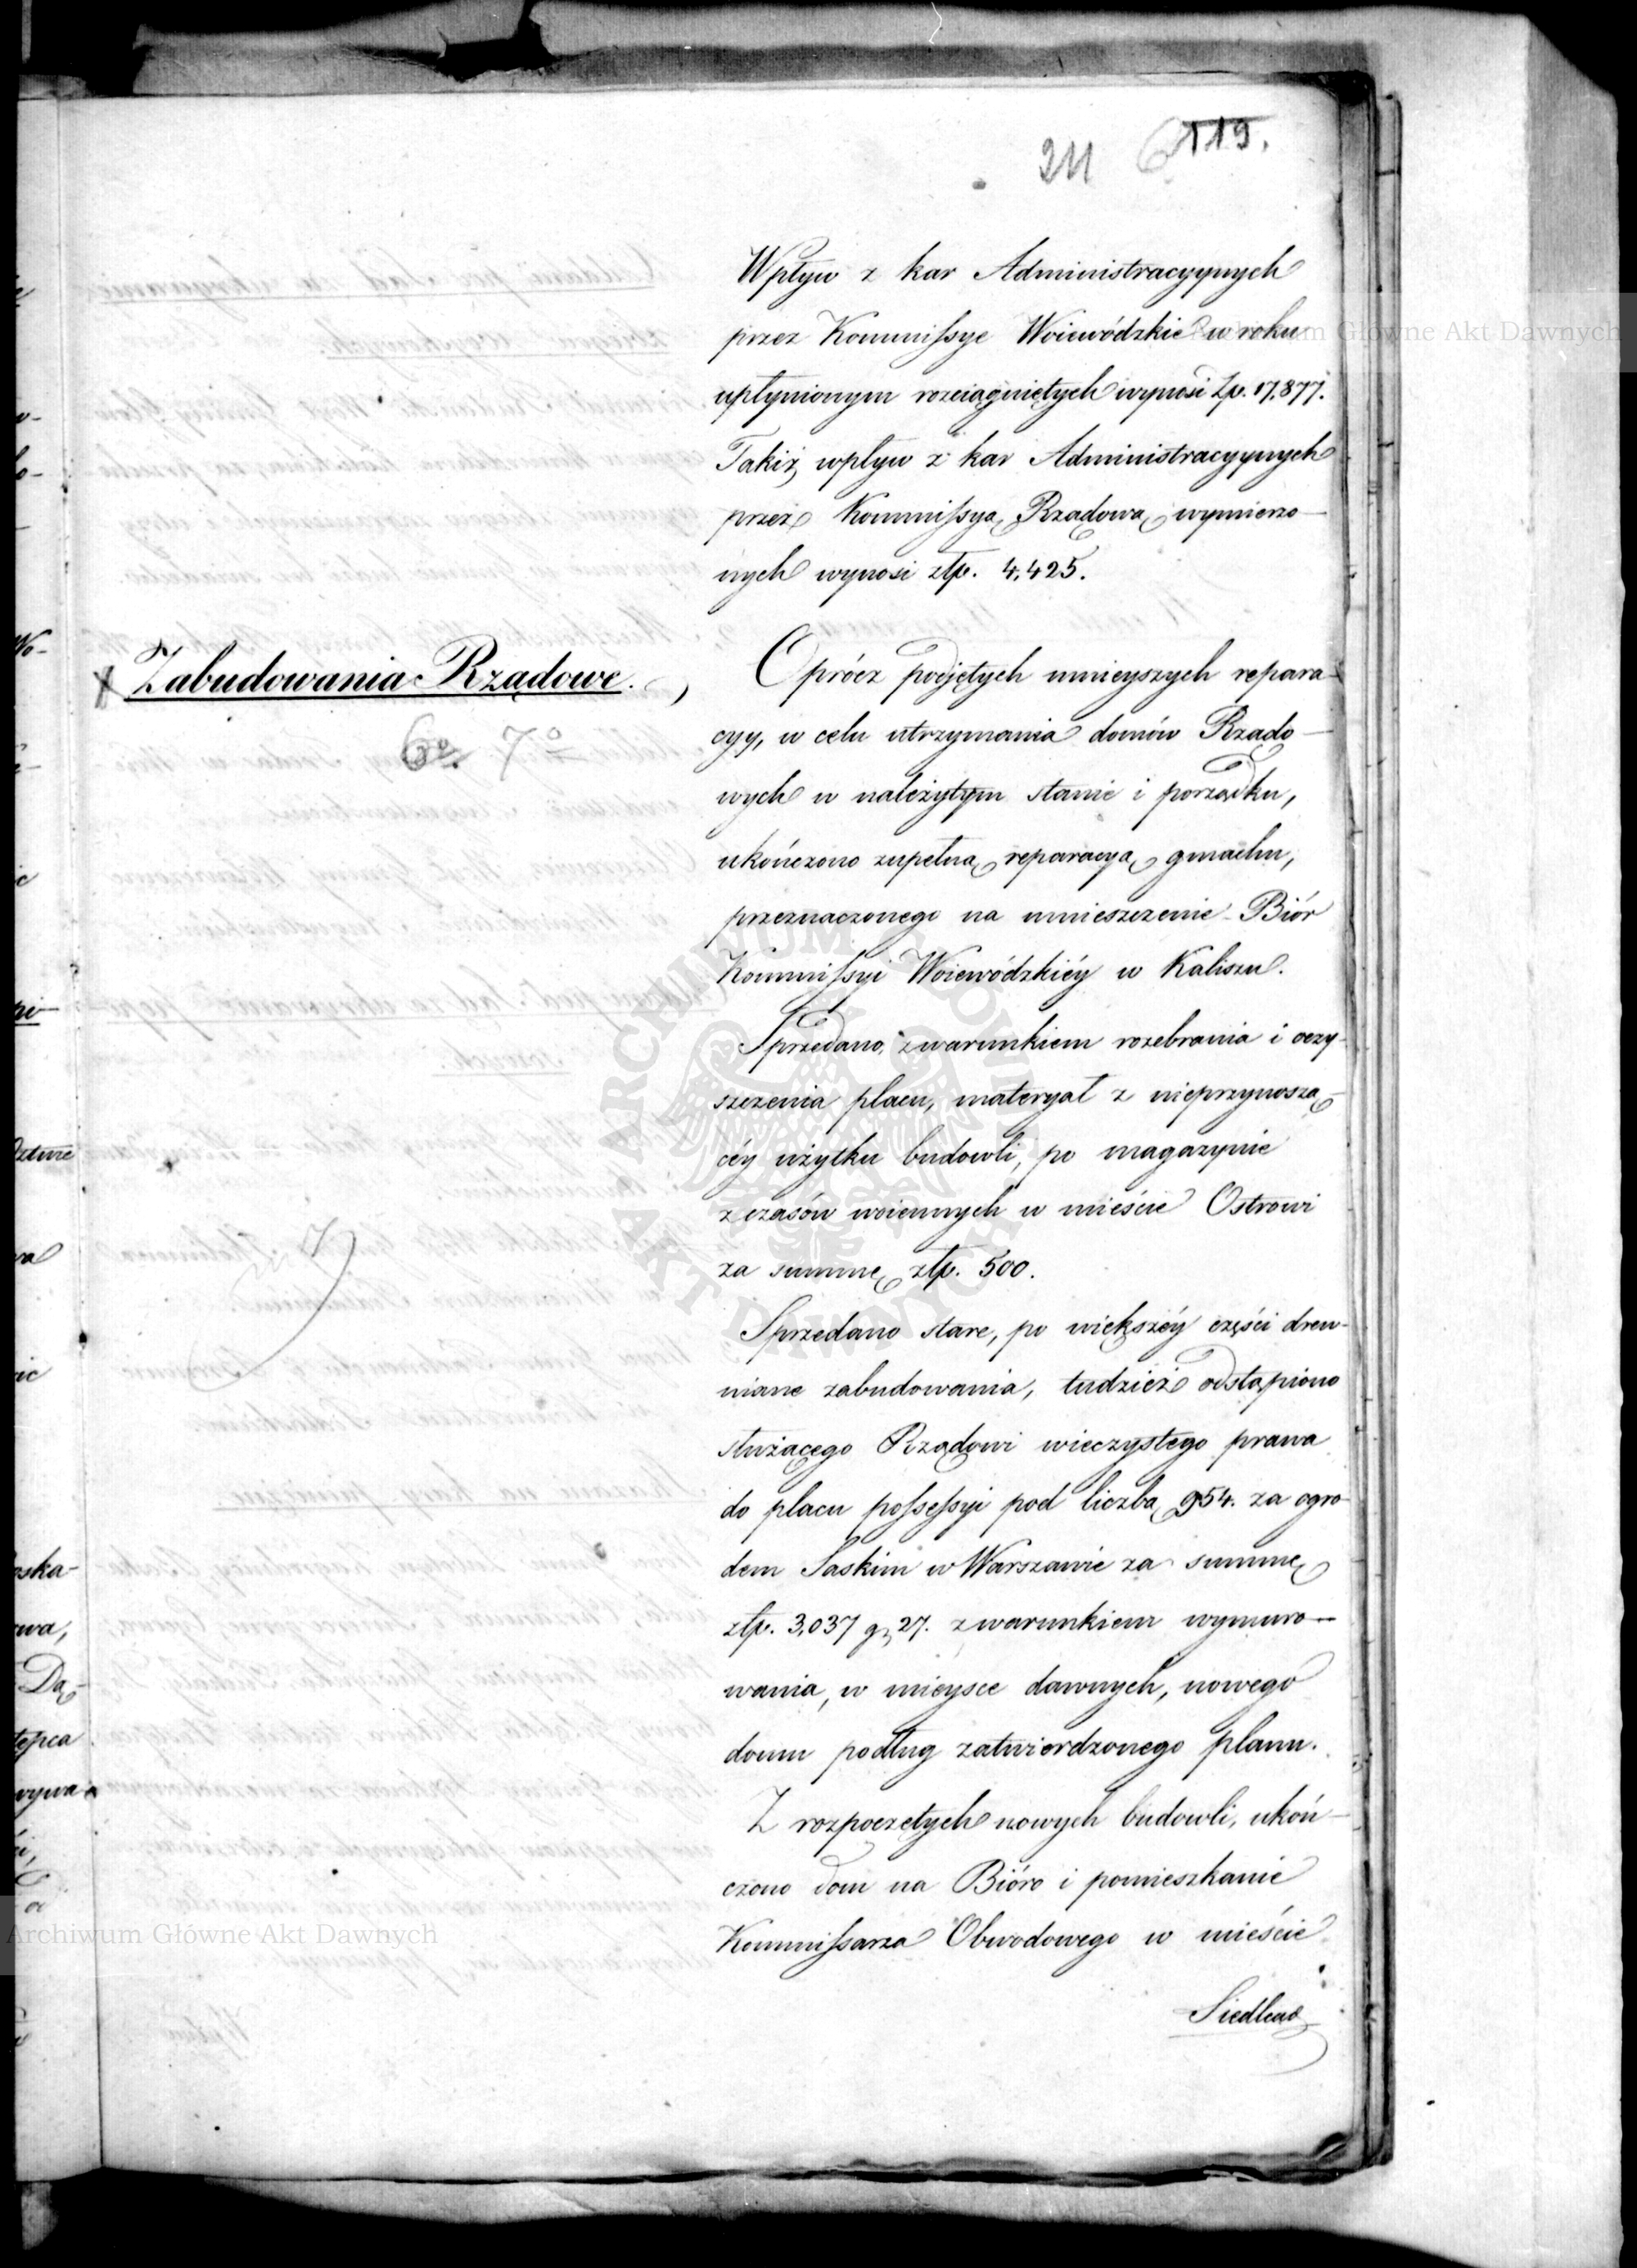 211 119.
Wpływ z kar Administracyynych
przez Kommissye Woiewódzkie w roku
upłynionym rozciągniętych wynosi Zp. 17,877.
Takiż wpływ z kar Administracyynych
przez Kommissyą Rządową wymierzo-
nych wynosi złp. 4,425.
Zabudowania Rządowe.
6o. 7o
Oprócz podjętych mnieyszych repara-
cyy, w celu utrzymania domów Rządo-
wych w należytym stanie i porządku,
ukończono zupełną reparacyą gmachu,
przeznaczonego na umieszczenie Biór
Kommissyi Woiewódzkiéy w Kaliszu.
Sprzedano, z warunkiem rozebrania i oczy-
szczenia placu, materyał z nieprzynoszą-
céy użytku budowli, po magazynie
z czasów woiennych w mieście Ostrowi
za summę złp. 500.
Sprzedano stare, po większéy części drew-
niane zabudowania, tudzież odstąpiono
służącego Rządowi wieczystego prawa
do placu possessyi pod liczbą 954. za ogro-
dem Saskim w Warszawie za summę
złp. 3,037 gr 27. z warunkiem wymuro-
wania, w mieysce dawnych, nowego
domu podług zatwierdzonego planu.
Z rozpoczętych nowych budowli, ukoń-
czono dom na Bióro i pomieszkanie
Kommissarza Obwodowego w mieście
Siedlcach
Archiwum Główne Akt Dawnych
Archiwum Główne Akt Dawnych
ARCHIWUM GŁÓWNE
AKT DAWNYCH